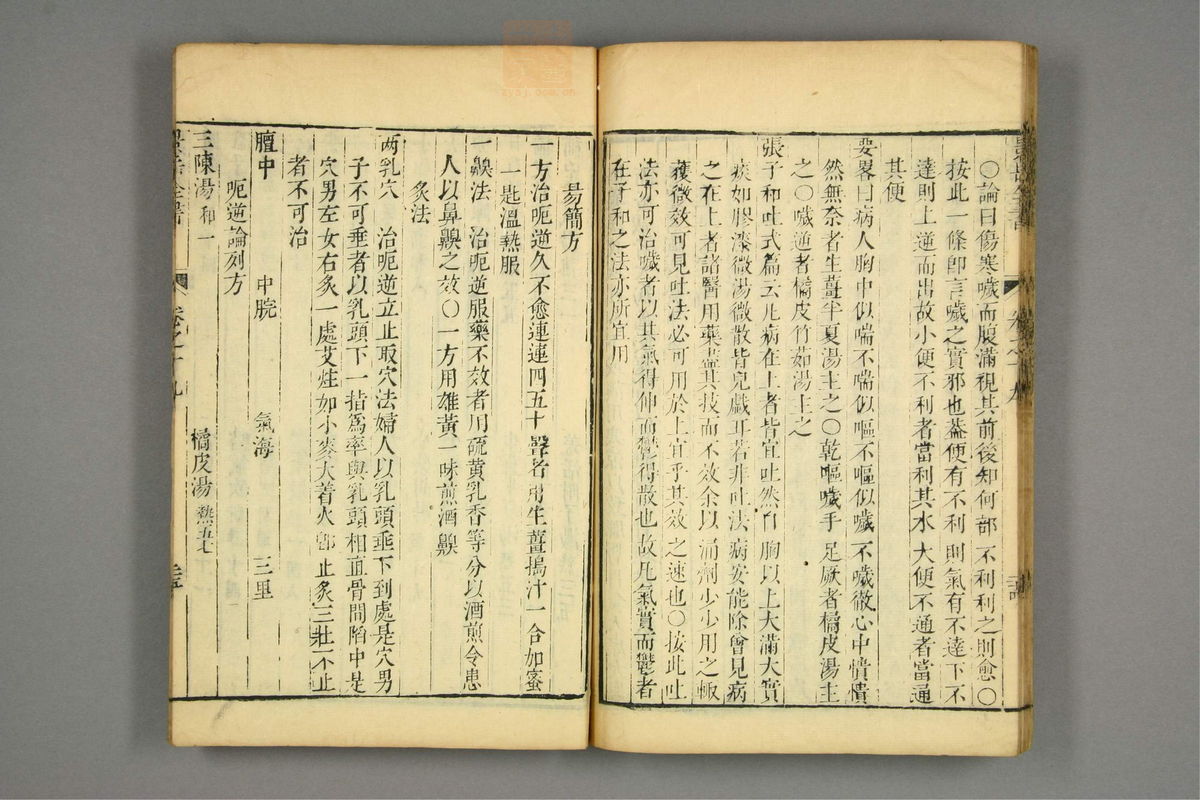 ○論曰傷寒噦而腹滿視其前後知何部不利利之則愈○
按此一條卽言噦之實邪也蓋便有不利則氣有不達下不
達則上逆而出故小便不利者當利其水大便不通者當通
其便
要畧曰病人胸中似喘不喘似嘔不嘔似噦不噦徹心中憒憒
然無奈者生薑半夏湯主之○乾嘔噦手足厥者橘皮湯主
之○噦逆者橘皮竹茹湯主之
張子和吐式篇云凡病在上者皆宜吐然自胸以上大滿大實
痰如膠漆微湯微散皆兒戲耳若非吐法病安能除曾見病
之在上者諸醫用藥盡其技而不效余以涌劑少少用之輙
獲微效可見吐法必可用於上宜乎其效之速也○按此吐
法亦可治噦者以其氣得伸而鬱得散也故凡氣實而鬱者
在子和之法亦所宜用
昜簡方
一方治呃逆久不愈連連四五十聲者用生薑搗汁一合加蜜
一匙溫熱服
一齅法 治呃逆服藥不效者用硫黄乳香等分以酒煎令患
人以鼻齅之效○一方用雄黃一味煎酒齅
炙法
两乳穴 治呃逆立止取穴法婦人以乳頭垂下到處是穴男
子不可垂者以乳頭下一指爲率與乳頭相直骨間陷中是
穴男左女右炙一處艾炷如小麥大着火卽止炙三壯不止
者不可治
膻中 中脘 氣海 三里
呃逆論列方
三陳湯和一 橘皮湯熱五七
景岳全書 卷之十九